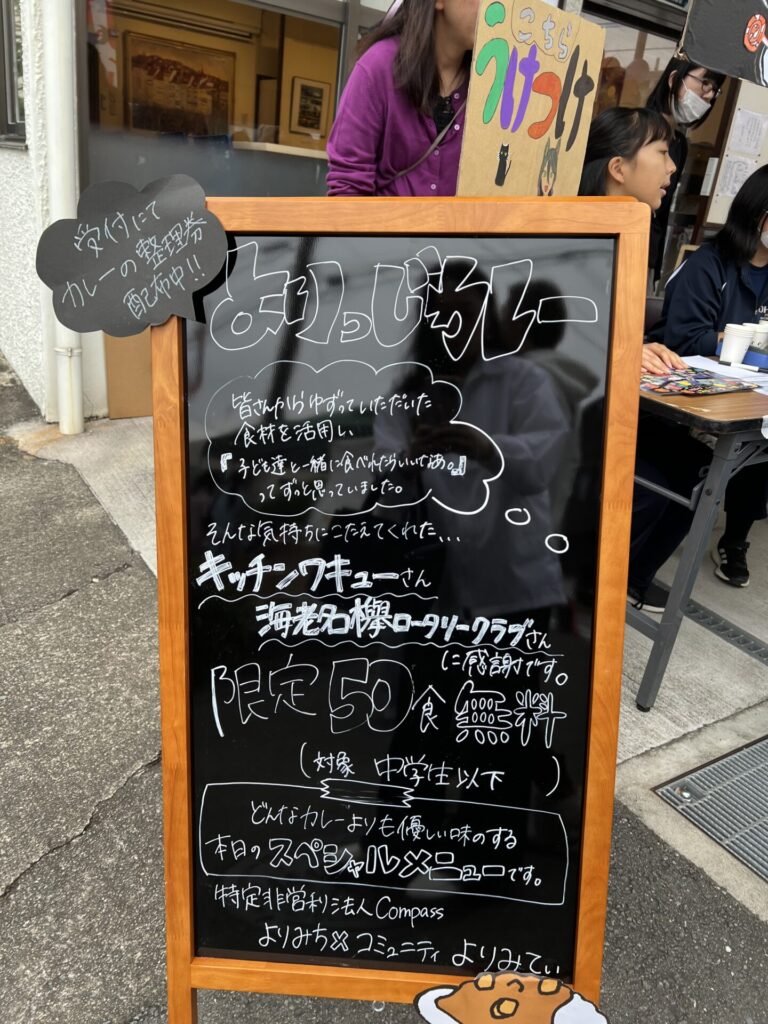 こちら
うけつけ
受付にて
カレーの整理券
配布中!!
よりっじカレー
皆さんからゆずっていただいた
食材を活用し
『子ども達と一緒に食べれたらいいなあ。』
ってずっと思っていました。
そんな気持ちにこたえてくれた、、、
キッチンワキューさん
海老名欅ロータリークラブさん
に感謝です。
限定50食 無料
(対象 中学生以下)
どんなカレーよりも優しい味のする
本日のスペシャルメニューです。
特定非営利法人Compass
よりみち×コミュニティ よりみてぃ